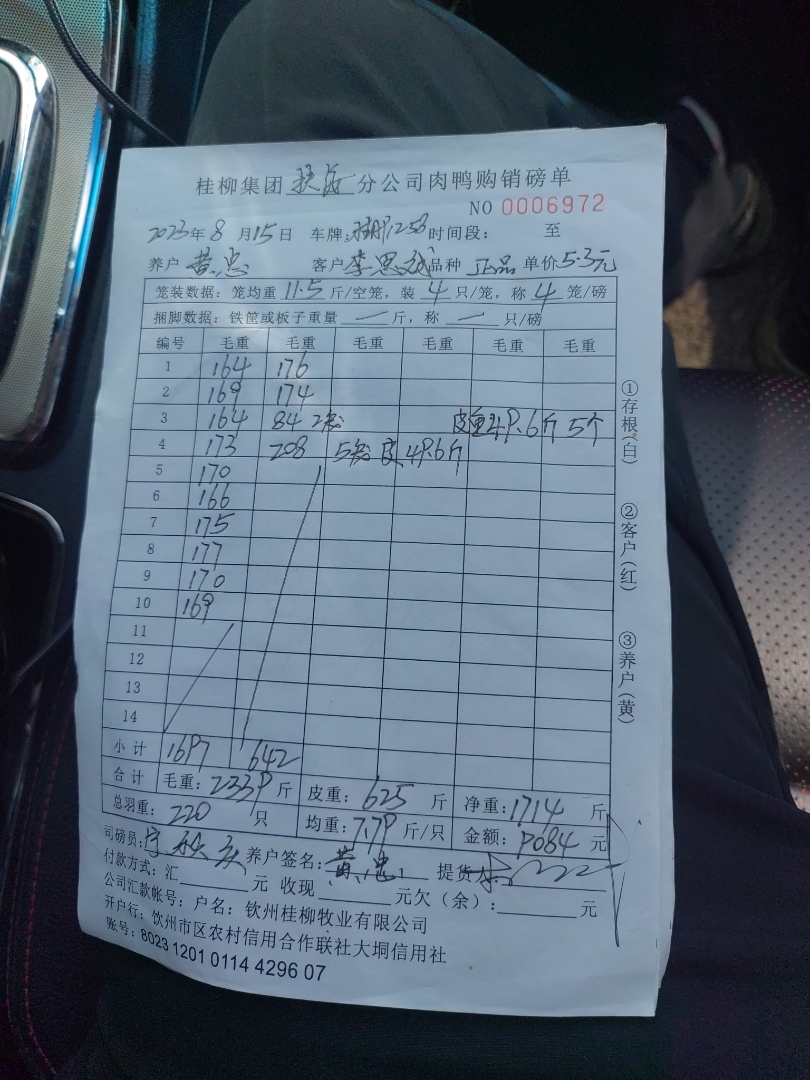 桂柳集团 分公司肉鸭购销磅单
NO 0006972
2023年8月15日 车牌: 1253 时间段: 至
养户 黄忠 客户 李思 品种 正品 单价 5.3元
笼装数据: 笼均重 11.5 斤/空笼, 装 4 只/笼, 称 4 笼/磅
捆脚数据: 铁筐或板子重量 一 斤, 称 一 只/磅
编号 毛重 毛重 毛重 毛重 毛重 毛重
1 164 176
2 169 174
3 164 84 2 皮重49.6斤 5个
4 173 208 5 皮 49.6斤
5 170
6 166
7 175
8 177
9 170
10 169
11
12
13
14
小计 1697 642
合计 毛重: 2339 斤 皮重: 625 斤 净重: 1714 斤
总羽重: 220 只 均重: 7.79 斤/只 金额: 9084 元
司磅员: 养户签名: 黄忠 提货人:
付款方式: 汇 元 收现 元欠(余): 元
公司汇款帐号: 户名: 钦州桂柳牧业有限公司
开户行: 钦州市区农村信用合作联社大垌信用社
账号: 8023 1201 0114 4296 07
①存根(白)
②客户(红)
③养户(黄)